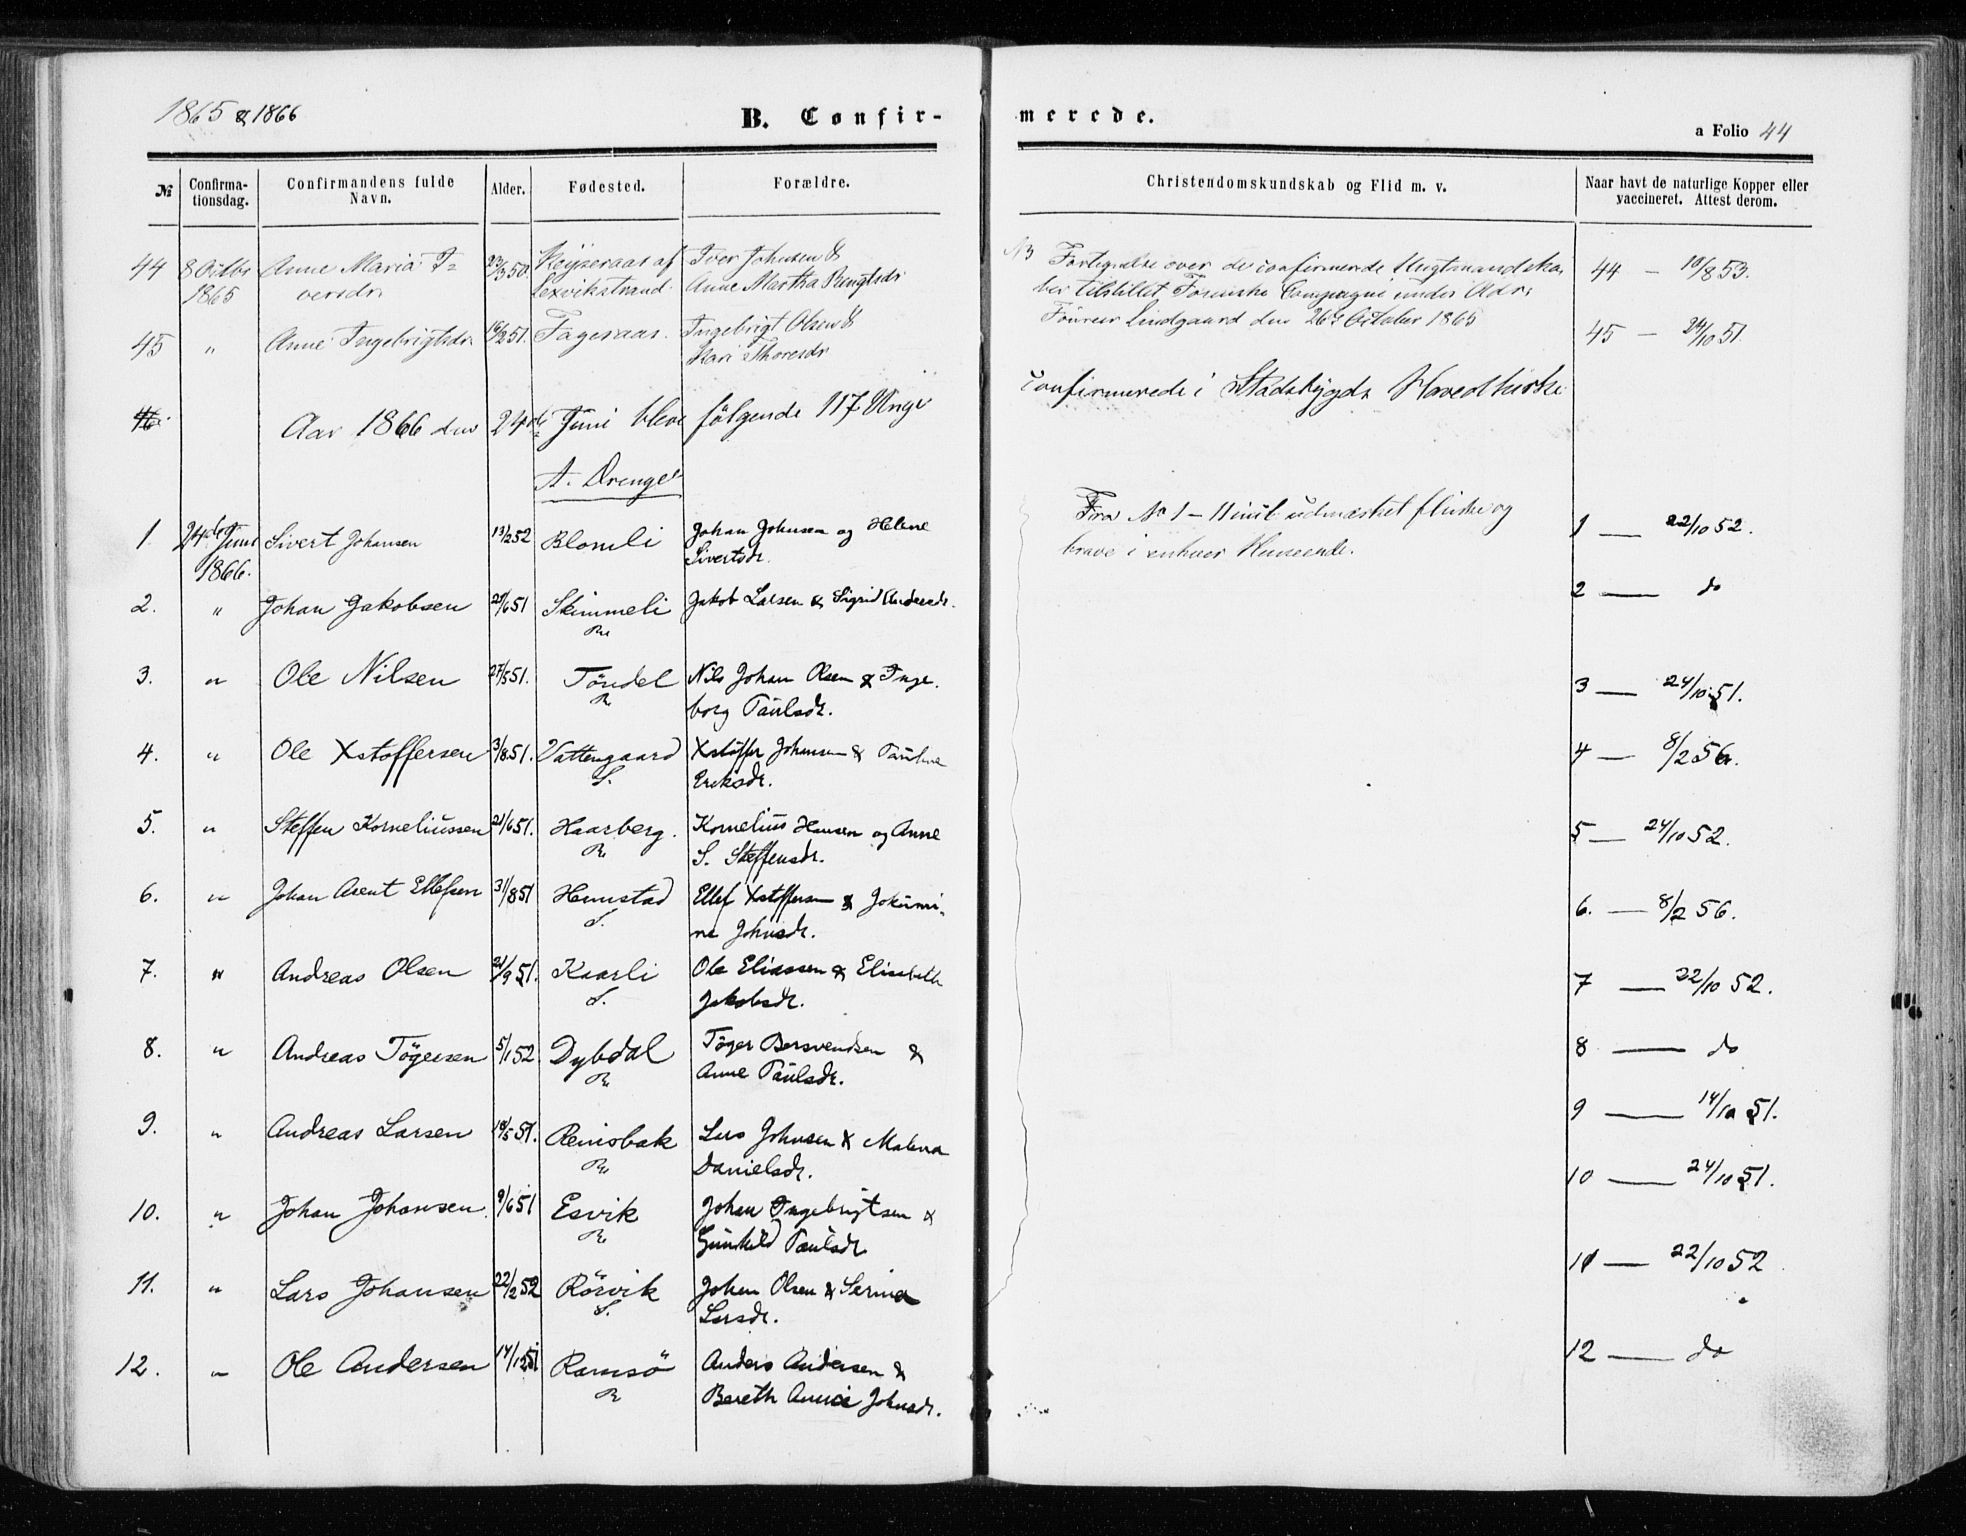 1865 & 1866
B. Confir-
merede.
a Folio 44
№
Confirma-
tionsdag.
Confirmandens fulde
Navn.
Alder.
Fødested.
Forældre.
Christendomskundskab og Flid m. v.
Naar havt de naturlige Kopper eller
vaccineret. Attest derom.
44 8 Octbr Anne Maria I= 23/3 50. Keyseraas af Iver Johnsen &
1865 versdr. Lexvikstrand Anne Martha Bengtsdr
Fortegnelse over de confirmerede Ungtmandska
ber tilstillet Compagni under Adr:
Fourer Lindgaard den 26de October 1865
44 — 18/8 53.
45 " Anne Ingebrigtsdr. 16/2 51. Fageraas. Ingebrigt Olsen &
Kari Thoresdr
45 — 24/10 51.
46
Aar 1866 den 24de Juni bleve følgende 117 Unge
confirmerede i Stadsbygds Hovedkirke
A. Drenge
1. 24de Juni Sivert Johansen 13/2 52 Blomli Johan Johnsen og Helene
1866. Sivertsdr.
Fra No 1 – 11 incl udmærket flinke og
brave i enhver Henseende.
1 — 22/10 52.
2. " Johan Jakobsen 29/6 51 Skimmeli Jakob Larsen & Sigrid Andersdr.
R.
2 — do
3. " Ole Nilsen 27/5 51. Tøndel Nils Johan Olsen & Inge-
R. borg Paulsdr.
3 — 24/10 51.
4. " Ole Xstoffersen 3/8 51. Vattengaard Xstoffer Johansen & Pauline
S. Eriksdr.
4 — 8/2 56.
5. " Steffen Korneliussen 21/6 51. Haarberg. Kornelius Hansen og Anne
R. S. Steffensdr.
5 — 24/10 52.
6. " Johan Arent Ellefsen 31/8 51 Hemstad Ellef Xstoffersen & Jokumi-
S. ne Johnsdr.
6. — 8/2 56.
7. " Andreas Olsen 21/9 51. Kaarli Ole Eliassen & Elisabeth
S. Jakobsdr.
7 — 22/10 52.
8. " Andreas Tøgersen 5/1 52 Dybdal Tøger Bersvendsen &
R. Anne Paulsdr.
8 — do
9. " Andreas Larsen 18/5 51. Reinsbak Lars Johnsen & Malena
R. Danielsdr.
9 — 14/10 51.
10. " Johan Johansen 9/6 51 Esvik Johan Ingebrigtsen &
R. Gunhild Paulsdr
10 — 24/10 51.
11. " Lars Johansen 22/2 52 Rørvik Johan Olsen & Serina
S. Larsdr.
11 — 22/10 52
12. " Ole Andersen 14/12 51 Ramsö Anders Andersen &
R Bereth Anna Johnsdr.
12 — do